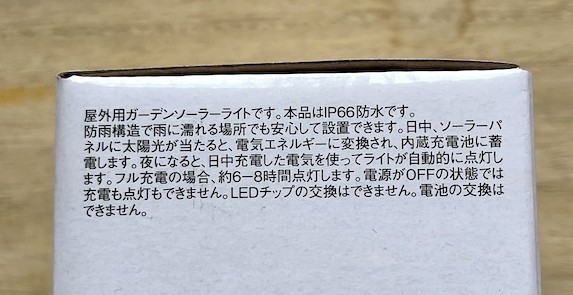 屋外用ガーデンソーラーライトです。本品はIP66防水です。
防雨構造で雨に濡れる場所でも安心して設置できます。日中、ソーラーパ
ネルに太陽光が当たると、電気エネルギーに変換され、内蔵充電池に蓄
電します。夜になると、日中充電した電気を使ってライトが自動的に点灯し
ます。フル充電の場合、約6ー8時間点灯します。電源がOFFの状態では
充電も点灯もできません。LEDチップの交換はできません。電池の交換は
できません。